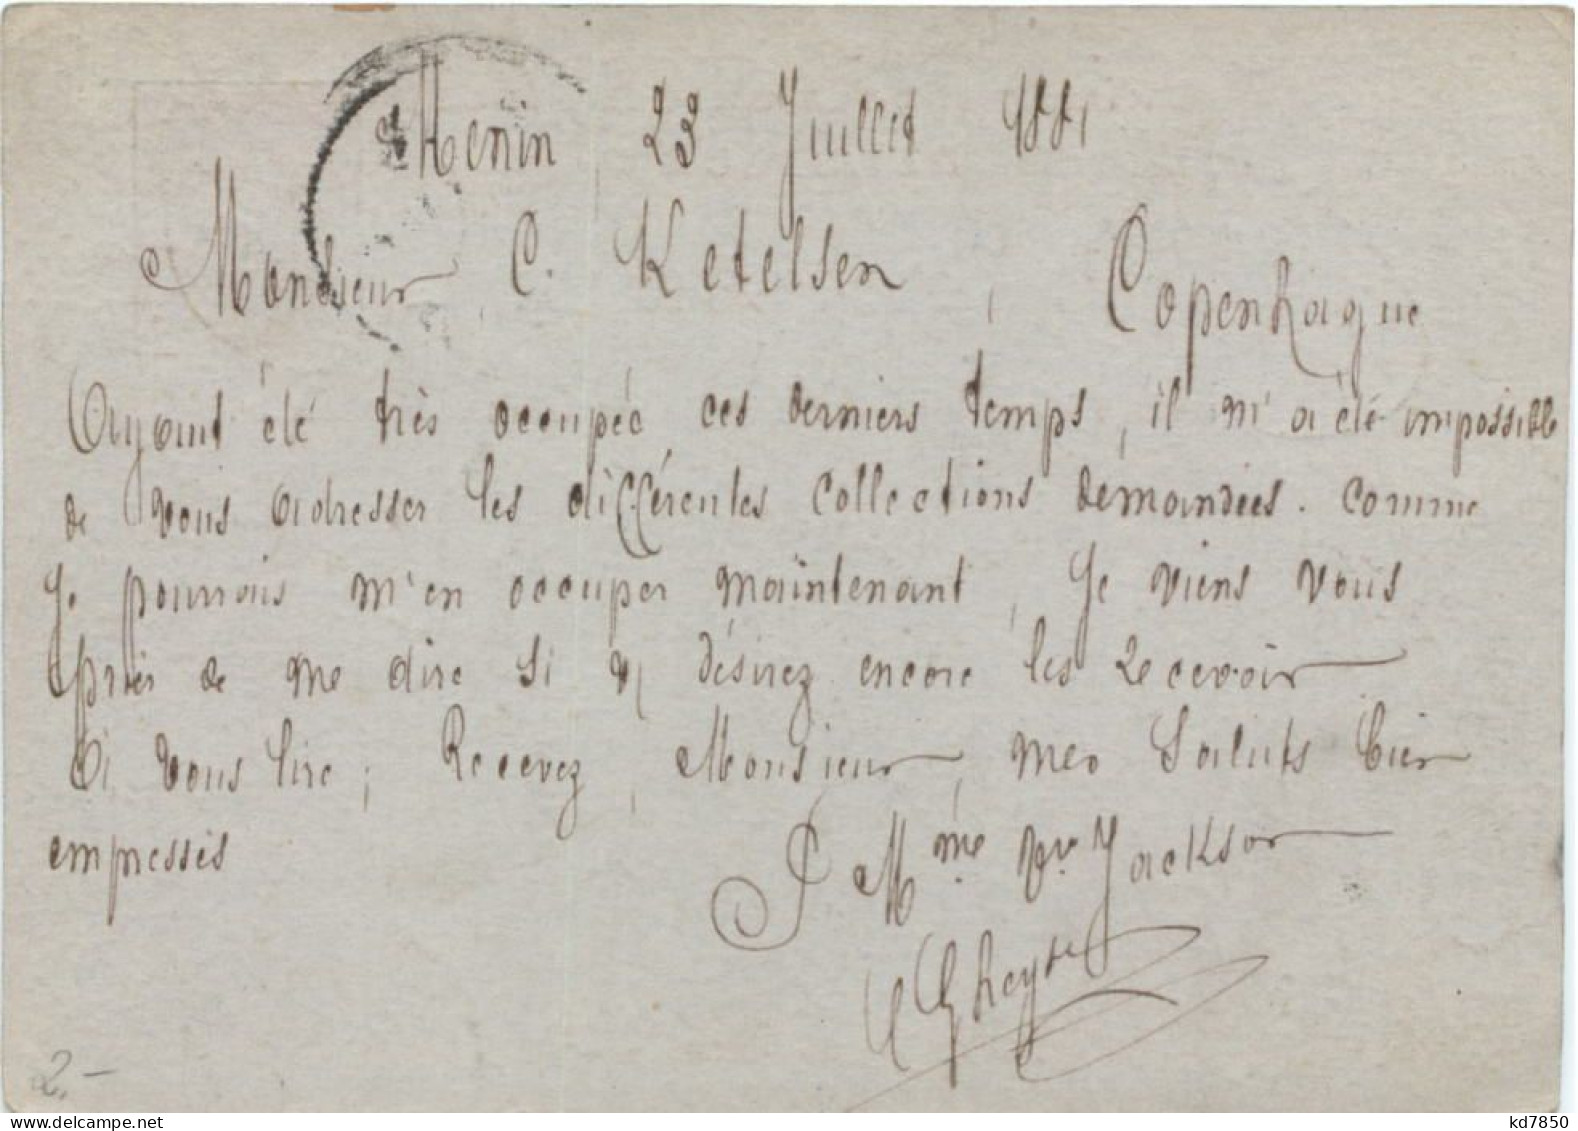 Menin 23 Juillet 1881
Monsieur C. Ketelsen, Copenhague
Ayant été très occupée ces derniers temps, il m'a été impossible
de vous adresser les différentes collections démandées. Comme
Je pourrais m'en occuper maintenant, Je viens vous
prier de me dire si v/ désirez encore les recevoir
A vous lire, Recevez, Monsieur, mes Saluts bien
empressés
P Mme Vve Jackson
2.-
kd7850